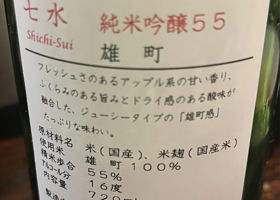 七水 純米吟醸55
Shichi-Sui 雄町
フレッシュさのあるアップル系の甘い香り、
ふくらみのある旨みとドライ感のある酸味が
融合した、ジューシータイプの「雄町感」
たっぷりな味わい。
原材料名 米(国産)、米麹(国産米)
使用米 雄町100%
精米歩合 55%
アルコール分 16度
内容量 720ml